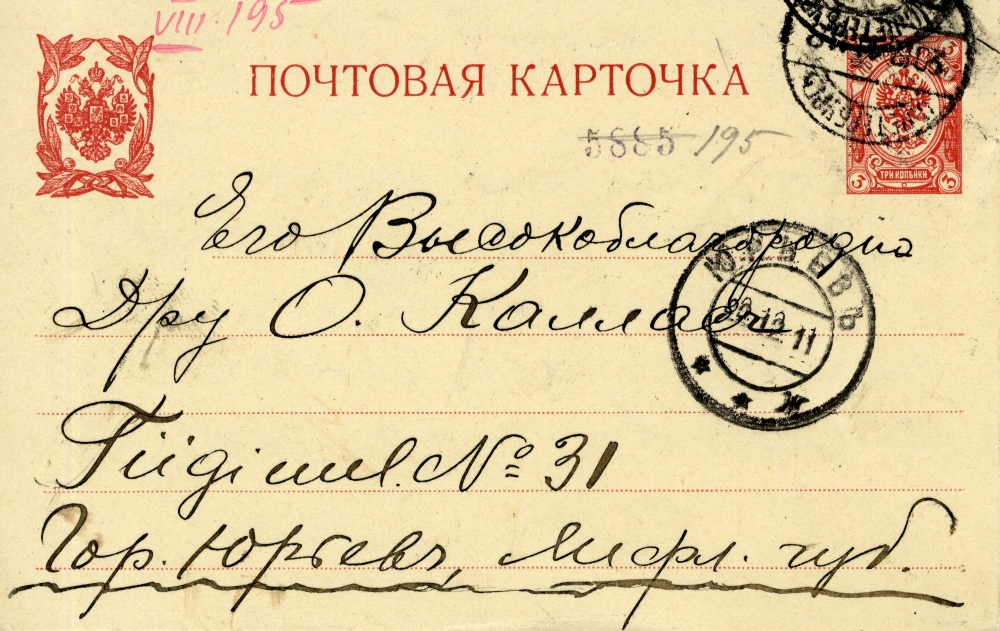 VIII. 195
ПОЧТОВАЯ КАРТОЧКА
5885 195
ТРИ КОПѢЙКИ
Его Высокоблагородию
Дру О. Калласъ
ЮРЬЕВЪ
12.11
Tiigi uul. № 31
Гор. Юрьевъ, Лифл. губ.